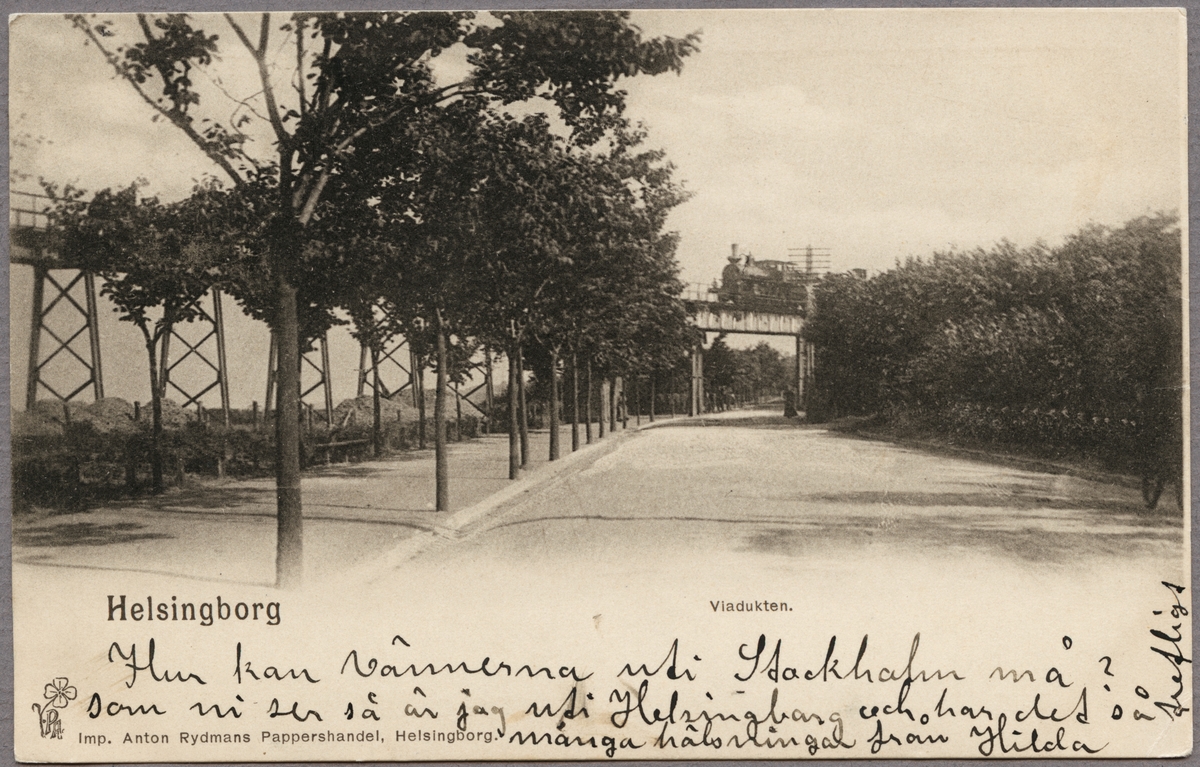 Helsingborg
Viadukten.
Hur kan vännerna uti Stockholm må?
som ni ser så är jag uti Helsingborg och har det så
trefligt
Imp. Anton Rydmans Pappershandel, Helsingborg.
många hälsningar från Hilda